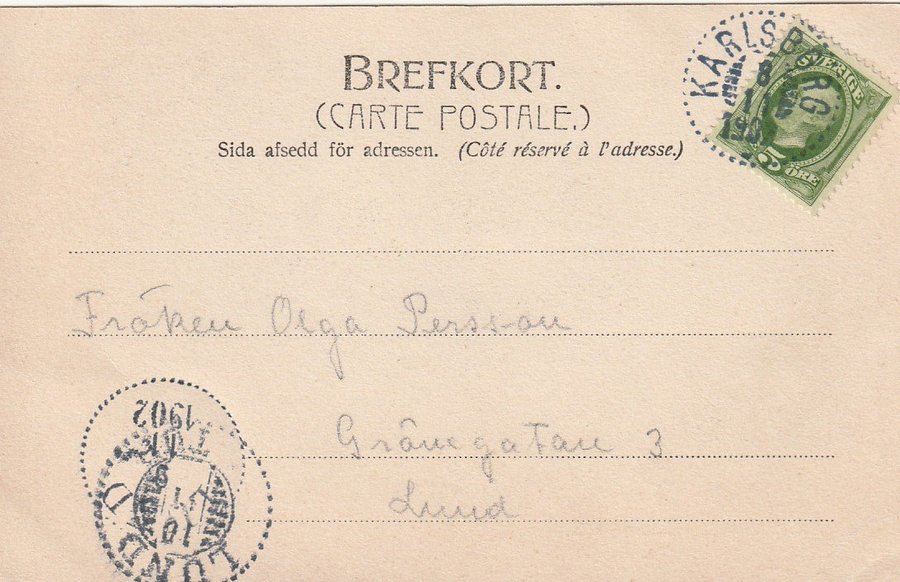 BREFKORT.
(CARTE POSTALE.)
Sida afsedd för adressen. (Côté réservé à l'adresse.)
KARLSBORG
8
1
190
SVERIGE
5 ÖRE
Fröken Olga Persson
Grönegatan 3
Lund
1902
LUND
10
1